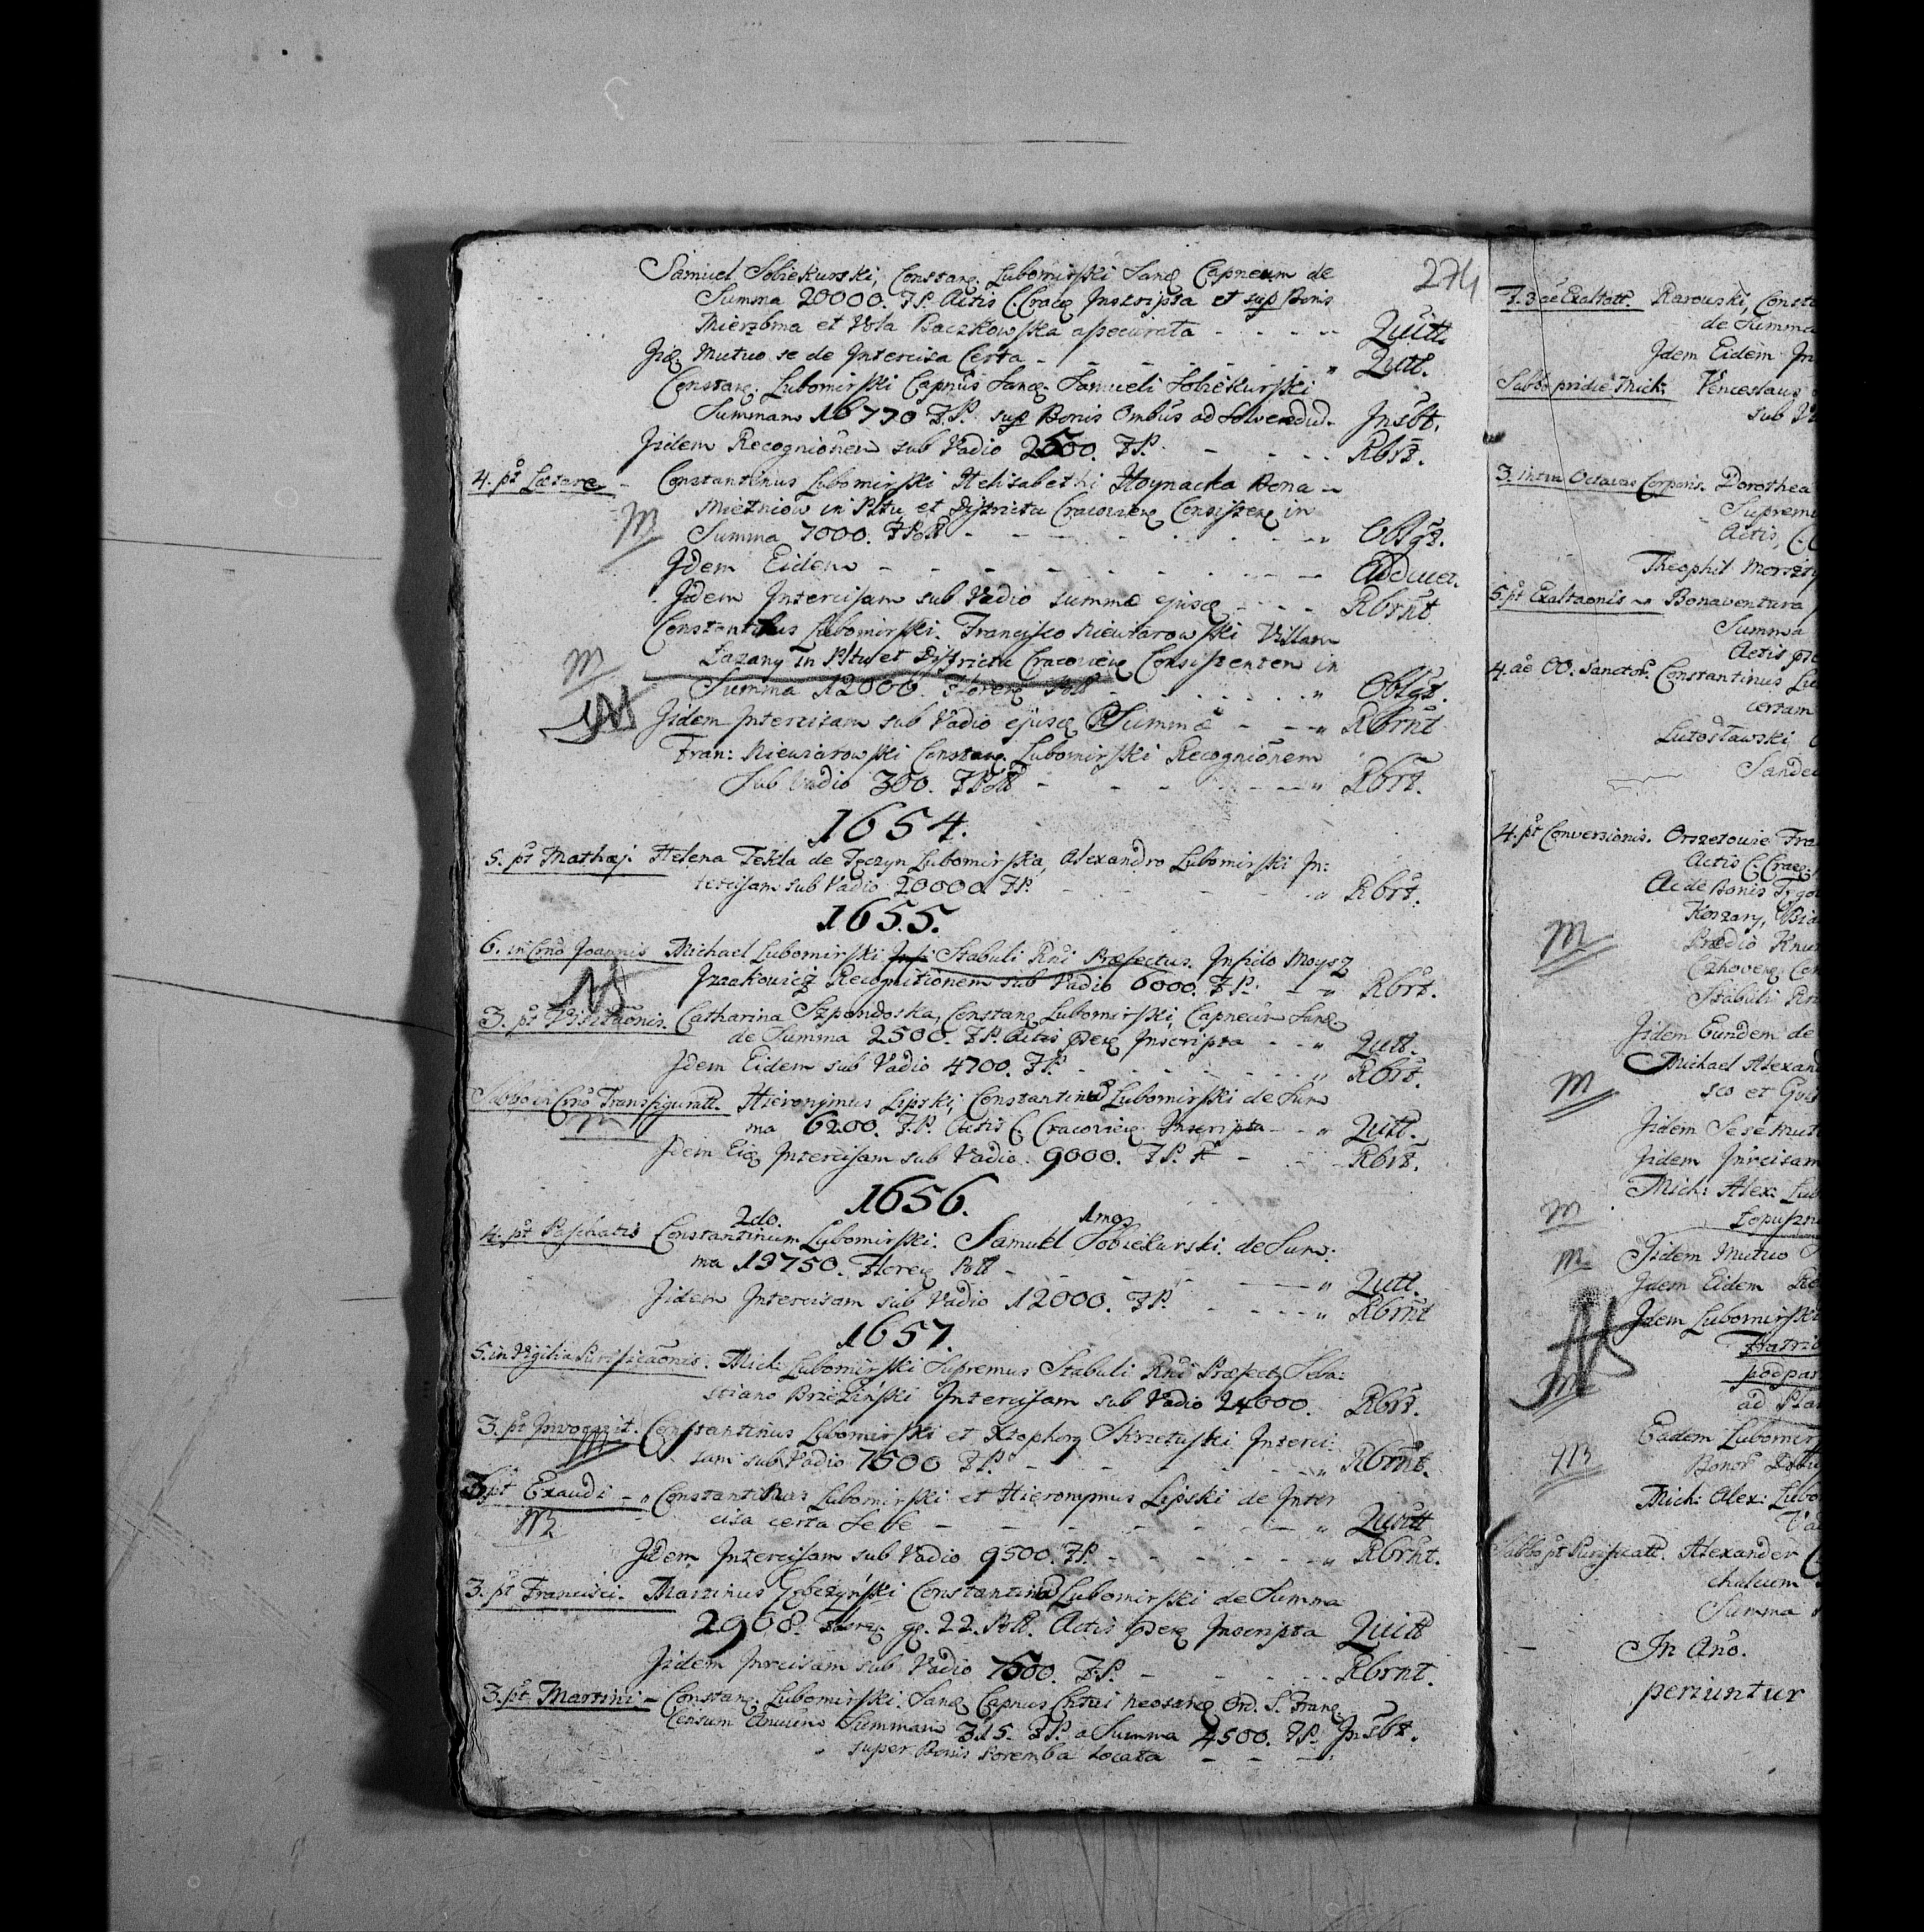 274
Samuel Sobiekurski, Constanę. Lubomirski Sandę Capneum de
Summa 20000. F.P. Actis C. Cracę Inscripta et sup Bonis
Mierzbma et Vola Baczkowska assecurata - - - - Quitt.
Jidę Mutuo se de Intercisa Certa - - - - - " Quitt.
Constanę. Lubomirski Capnus Sandę. Samueli Sobiekurski
Summam 16770 F.P. sup Bonis Ombus ad Solvendud. Insbt.
Jidem Recognionem sub Vadio 2500. F.P. - - - - Rbrt.
4. pt Lætare - Constantinus Lubomirski Helisabethi Hoynacka Bona -
M Mietniow in Pltu et Districtu Cracovienę Consistenę in
Summa 7000. F Poll - - - - - - - " Oblgt.
Jdem Eidem - - - - - - - Adduet.
Jidem Intercisam sub Vadio summæ ejusdę - - - Rbrnt
Constantinus Lubomirski. Francisco Niewiarowski Villam
M Łazany in Pltu et Districtu Cracovienę Consistentem in
Summa 12000. Florenę Poll - - - - - " Oblgt.
Jidem Intercisam sub Vadio ejusdę Summæ - - - " Rbrnt
Fran: Niewiarowski Constanę. Lubomirski Recognionem
Sub Vadio 300. F Poll - - - - - " Rbrt.
1654.
5. pt Mathæj. Helena Tekla de Tęczyn Lubomirska, Alexandro Lubomirski In:
tercisam sub Vadio 20000 F.P. - - - - " Rbrt.
1655.
6. in Crno Joannis Michael Lubomirski Stabuli Rni Præfectus. Infido Moysz
Jzaakowicz Recognitionem sub Vadio 6000. F.P. - " Rbrt.
3. pt Visitaonis. Catharina Szpondoska, Constanę Lubomirski, Capneum Sandę
de Summa 2500. F.P. Actis pdenę Inscripta - - " Quitt.
Jdem Eidem sub Vadio 4700. F.P. - - - - " Rbrt.
Sabbo in Crno Transfiguratt. Hieronymus Lipski, Constantinum Lubomirski de Sum
M ma 6200. F.P. Actis C. Cracovienę Inscripta - - " Quitt.
Jdem Eidę Intercisam sub Vadio. 9000. F.P. - - - Rbrt.
1656.
2do. 1mo
4. pt Paschatis Constantinum Lubomirski. Samuel Sobiekurski. de Sum:
ma 19750. Florenę Poll - - - - - " Quitt.
Jidem Intercisam sub Vadio 12000. F.P. - - - " Rbrnt
1657.
5. in Vigilia Purificaonis. Mich: Lubomirski Supremus Stabuli Rni Præfectę Seba:
stiano Brzeziński Intercisam sub Vadio 24000. Rbrt.
3. pt Invocavit. Constantinus Lubomirski et Xtophorę Skrzetuski Interci:
M sam sub Vadio 7500 F.P. - - - - - " Rbrnt.
3 pt Exaudi - " Constantinus Lubomirski et Hieronymus Lipski de Inter
M cisa certa Sese - - - - - - " Quitt
Jdem Intercisam sub Vadio 9500. F.P. - - - - " Rbrnt.
3. pt Francisci. Martinus Constantinum Lubomirski de Summa
2908. Florę. gr. 22. Poll. Actis pdenę Inscripta Quitt
Jidem Inrcisam sub Vadio 7500. F.P. - - - - Rbrnt.
3. pt. Martini - Constanę. Lubomirski. Sandę. Capnus Ord. S. Franę.
Censum Annuum Summam 315. F.P. a Summa 4500. F.P. Insbt.
super Bonis Poremba Locata - - -
F. 3 ae Exaltatt. Rarouski, Const
de Summa
Jdem Eidem In
Sabbo pridie Mich. Venceslaus
sub V
3. intra Octavas Corporis. Dorothea
Suprem
Actis, C
Theophil Morszty
5. pt Exaltaonis - Bonaventura
Summa
Actis
4. ae OO. Sanctor. Constantinus Lu
certam
Lutosławski
Sande
4. pt Conversionis. Orszetowie Fra
Actis C. Cracę
Ac de Bonis
Koszary,
M Prædio Knu
Czhovenę Con
Stabuli Rn
Jidem Eundem de
Michael Alexand
M sco et
Jidem Sese Mut
Jidem Inrcisam
Mich: Alex: Lub
M Łopuszn
M Jidem Mutuo
Jdem Eidem Re
Jdem Lubomirski
podpar
M ad
Eadem Lubomir
M Bonor
Mich: Alex: Lubo
Va
Sabbo pt Purificatt. Alexander
chalcum
Summa
In Ano.
periuntur